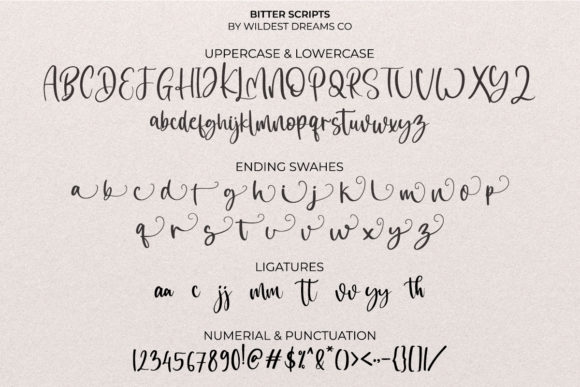 BITTER SCRIPTS
BY WILDEST DREAMS CO
UPPERCASE & LOWERCASE
ABCDEFGHIJKLMNOPQRSTUVWXYZ
abcdefghijklmnopqrstuvwxyz
ENDING SWAHES
a b c d e f g h i j k l m n o p
q r s t u v w x y z
LIGATURES
aa c jj mm tt vv yy th
NUMERIAL & PUNCTUATION
1234567890!@#$%^&*()><..-{}[]|/